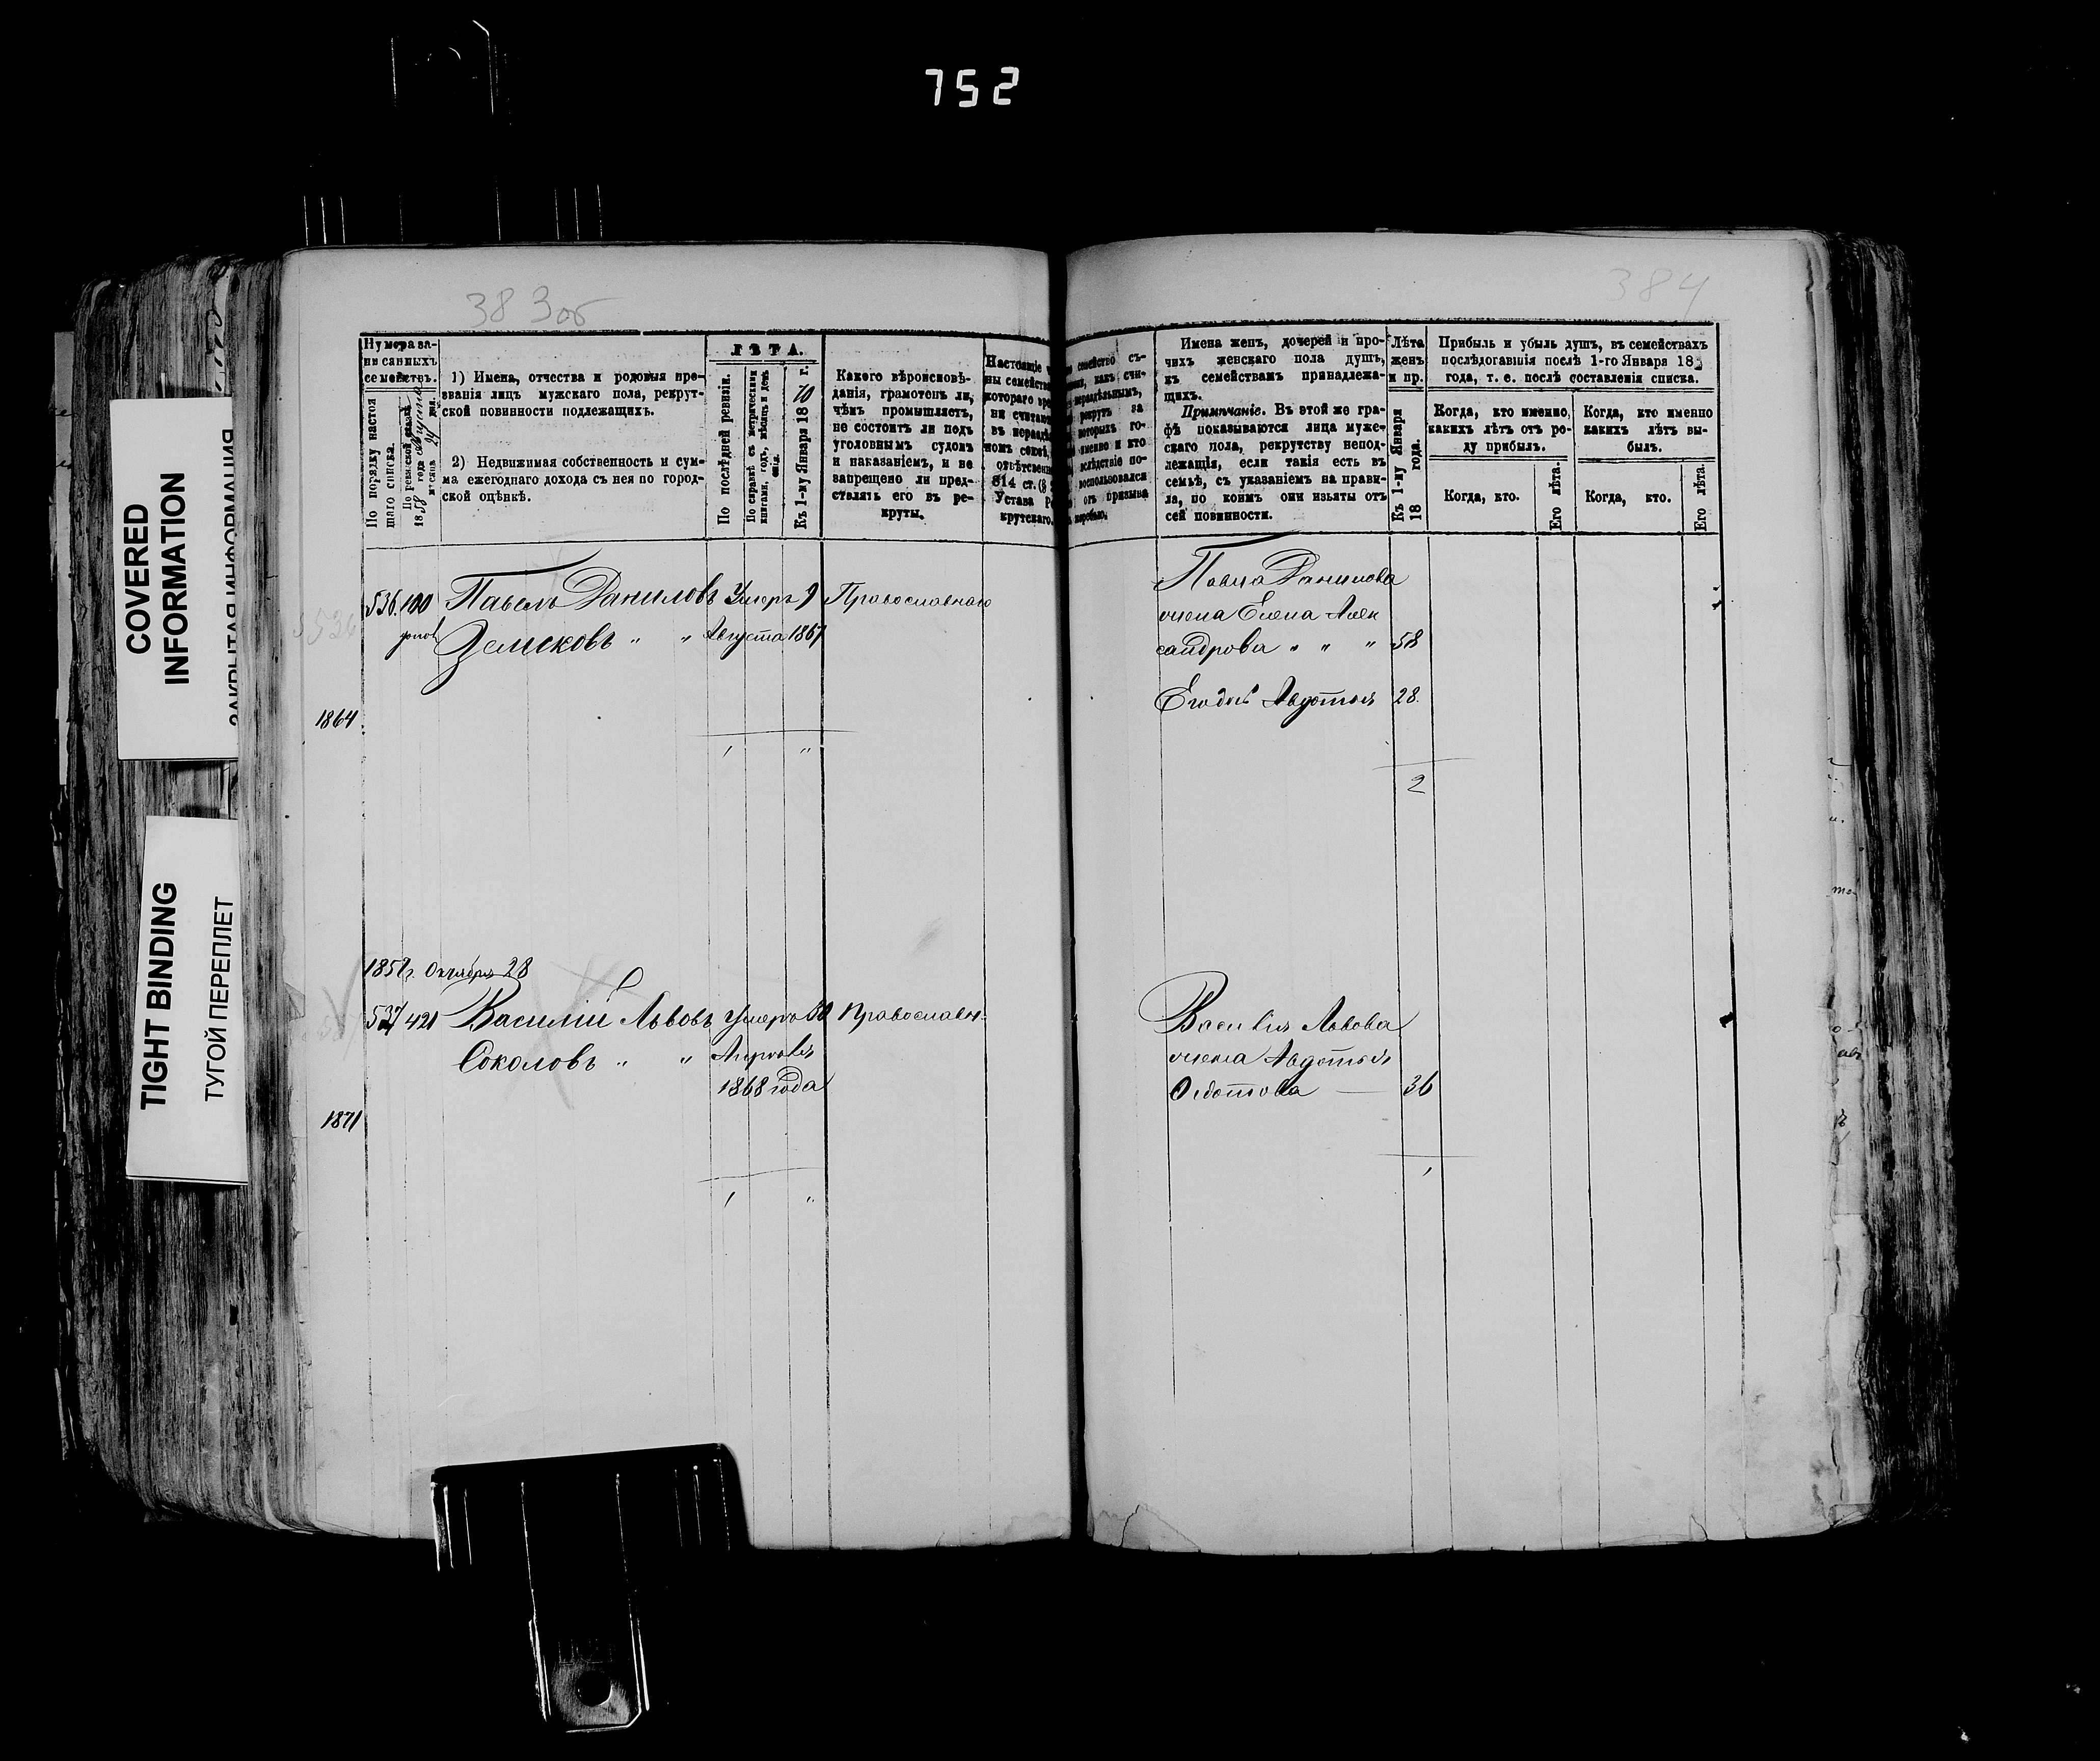 752
COVERED
INFORMATION
TIGHT BINDING
ТУГОЙ ПЕРЕПЛЕТ
383об
Нумера за-
писанныхъ
семействъ.
По порядку настоя
щаго списка.
По ревизской
1858 года
мѣсяца 24 дня.
1) Имена, отчества и родовыя про-
званія лицъ мужскаго пола, рекрут-
ской повинности подлежащихъ.
2) Недвижимая собственность и сум-
ма ежегоднаго дохода съ нея по город-
ской оцѣнкѣ.
ЛѢТА.
По послѣдней ревизіи.
По справкѣ съ метрическими
книгами, годъ, мѣсяцъ и день
Къ 1-му Января 1870 г.
Какого вѣроисповѣ-
данія, грамотенъ ли,
чѣмъ промышляетъ,
не состоитъ ли подъ
уголовнымъ судомъ
и наказаніемъ, и не
запрещено ли пред-
ставлять его въ ре-
круты.
Настоящіе
ны семейства
котораго
ни считаю
въ нераздѣ
номъ
814 ст. (§
Устава Ре
крутскаго.
536. 100 Павелъ Даниловъ Умеръ 9 Православнаго
Земсковъ " " Августа 1867
1864
" "
1858 г. Октября 28
537 421 Василій Львовъ Умеръ Православн.
Соколовъ " " Апрѣля
1868 года
1871
" "
384
семейство съ-
какъ счи-
нераздѣльнымъ,
рекрутъ за
которыхъ го-
именно и кто
вслѣдствіе по-
воспользовался
отъ призыва
жеребью.
Имена женъ, дочерей и про-
чихъ женскаго пола душъ,
къ семействамъ принадлежа-
щихъ.
Примѣчаніе. Въ этой же гра-
фѣ показываются лица муже-
скаго пола, рекрутству непод-
лежащія, если такія есть въ
семьѣ, съ указаніемъ на прави-
ла, по коимъ они изъяты отъ
сей повинности.
Лѣта
женъ
и пр.
Къ 1-му Января
18 года.
Прибыль и убыль душъ, въ семействахъ
послѣдовавшія послѣ 1-го Января 18
года, т. е. послѣ составленія списка.
Когда, кто именно,
какихъ лѣтъ отъ ро-
ду прибылъ.
Когда, кто именно
какихъ лѣтъ вы-
былъ.
Когда, кто.
Его лѣта.
Когда, кто.
Его лѣта.
Павла Данилова
жена Елена Алек
сандрова " " " 58
Его дочь Авдотья 28.
2
Василія Львова
жена Авдотья
Федотова — 36
1